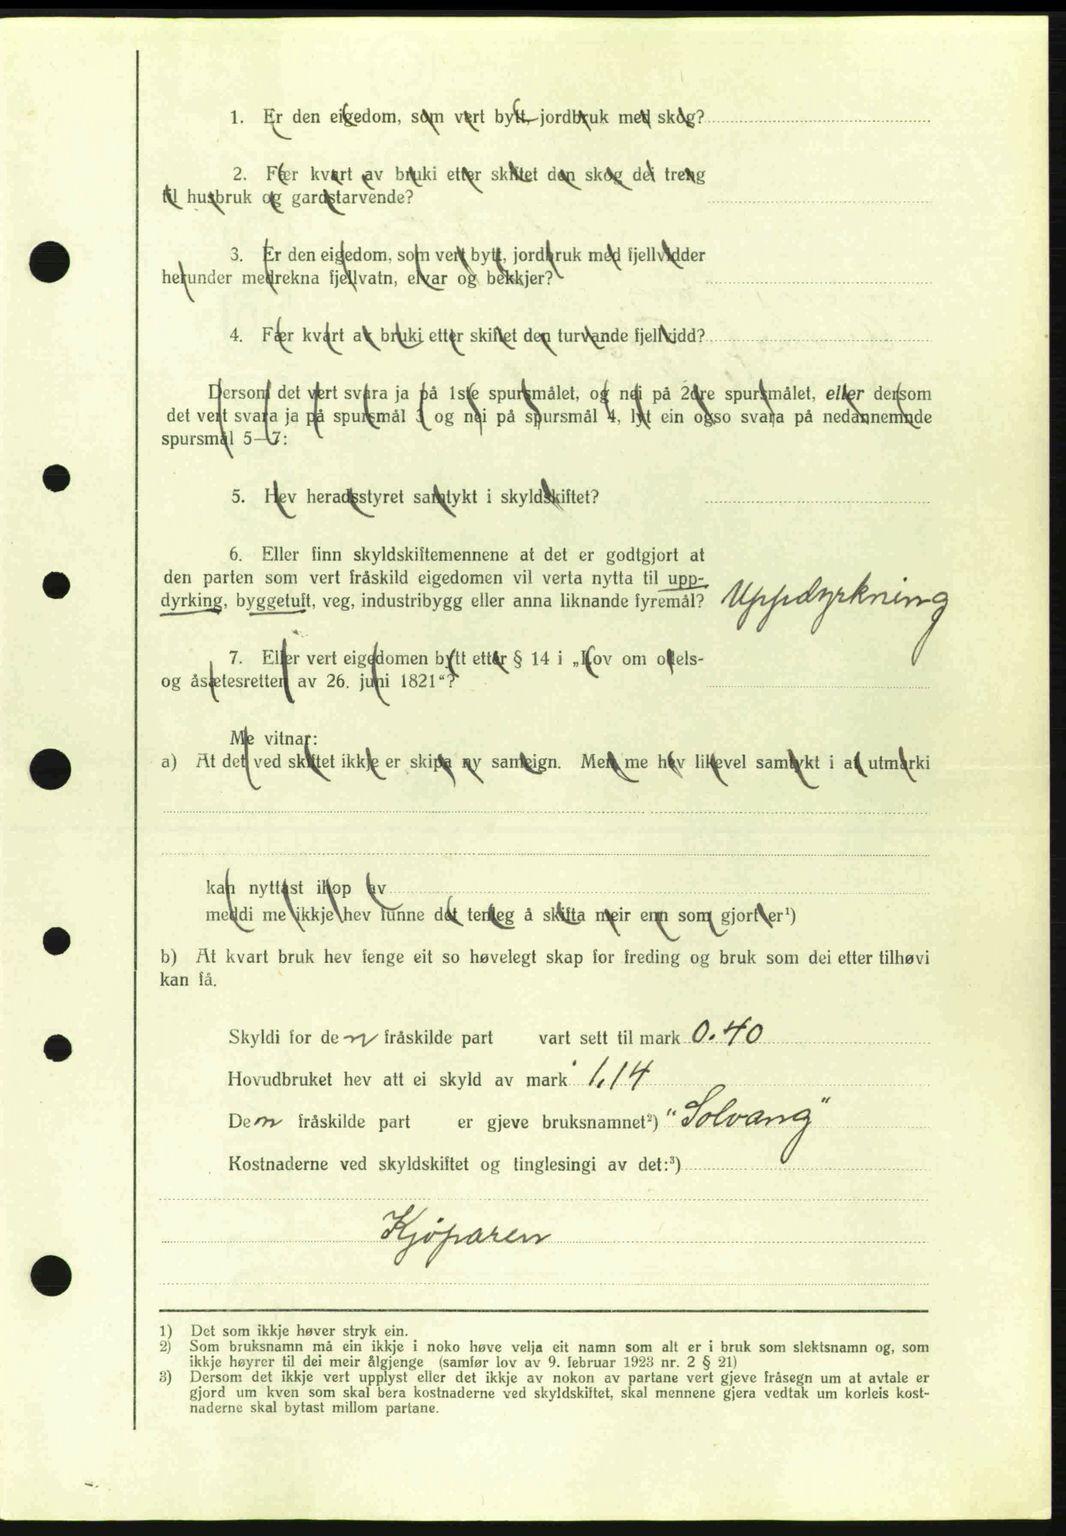 1. Er den eigedom, som vert bytt, jordbruk med skog?
2. Fær kvart av bruki etter skiftet den skog dei treng
til husbruk og gardstarvende?
3. Er den eigedom, som vert bytt, jordbruk med fjellvidder
herunder medrekna fjellvatn, elvar og bekkjer?
4. Fær kvart av bruki etter skiftet den turvande fjellvidd?
Dersom det vert svara ja på 1ste spursmålet, og nei på 2dre spursmålet, eller dersom
det vert svara ja på spursmål 3 og nei på spursmål 4, lyt ein ogso svara på nedannemnde
spursmål 5—7:
5. Hev heradsstyret samtykt i skyldskiftet?
6. Eller finn skyldskiftemennene at det er godtgjort at
den parten som vert fråskild eigedomen vil verta nytta til upp-
dyrking, byggetuft, veg, industribygg eller anna liknande fyremål? Uppdyrkning
7. Eller vert eigedomen bytt etter § 14 i „Lov om odels-
og åsætesretten av 26. juni 1821“?
Me vitnar:
a) At det ved skiftet ikkje er skipa ny sameign. Men me hev likevel samtykt i at utmarki
kan nyttast ihop av
meddi me ikkje hev funne det tenleg å skifta meir enn som gjort er¹)
b) At kvart bruk hev fenge eit so høvelegt skap for freding og bruk som dei etter tilhøvi
kan få.
Skyldi for den fråskilde part vart sett til mark 0.40
Hovudbruket hev att ei skyld av mark 1,14
Den fråskilde part er gjeve bruksnamnet²) "Solvang"
Kostnaderne ved skyldskiftet og tinglesingi av det:³)
Kjøparen
1) Det som ikkje høver stryk ein.
2) Som bruksnamn må ein ikkje i noko høve velja eit namn som alt er i bruk som slektsnamn og, som
ikkje høyrer til dei meir ålgjenge (samfør lov av 9. februar 1923 nr. 2 § 21)
3) Dersom det ikkje vert upplyst eller det ikkje av nokon av partane vert gjeve fråsegn um at avtale er
gjord um kven som skal bera kostnaderne ved skyldskiftet, skal mennene gjera vedtak um korleis kost-
naderne skal bytast millom partane.